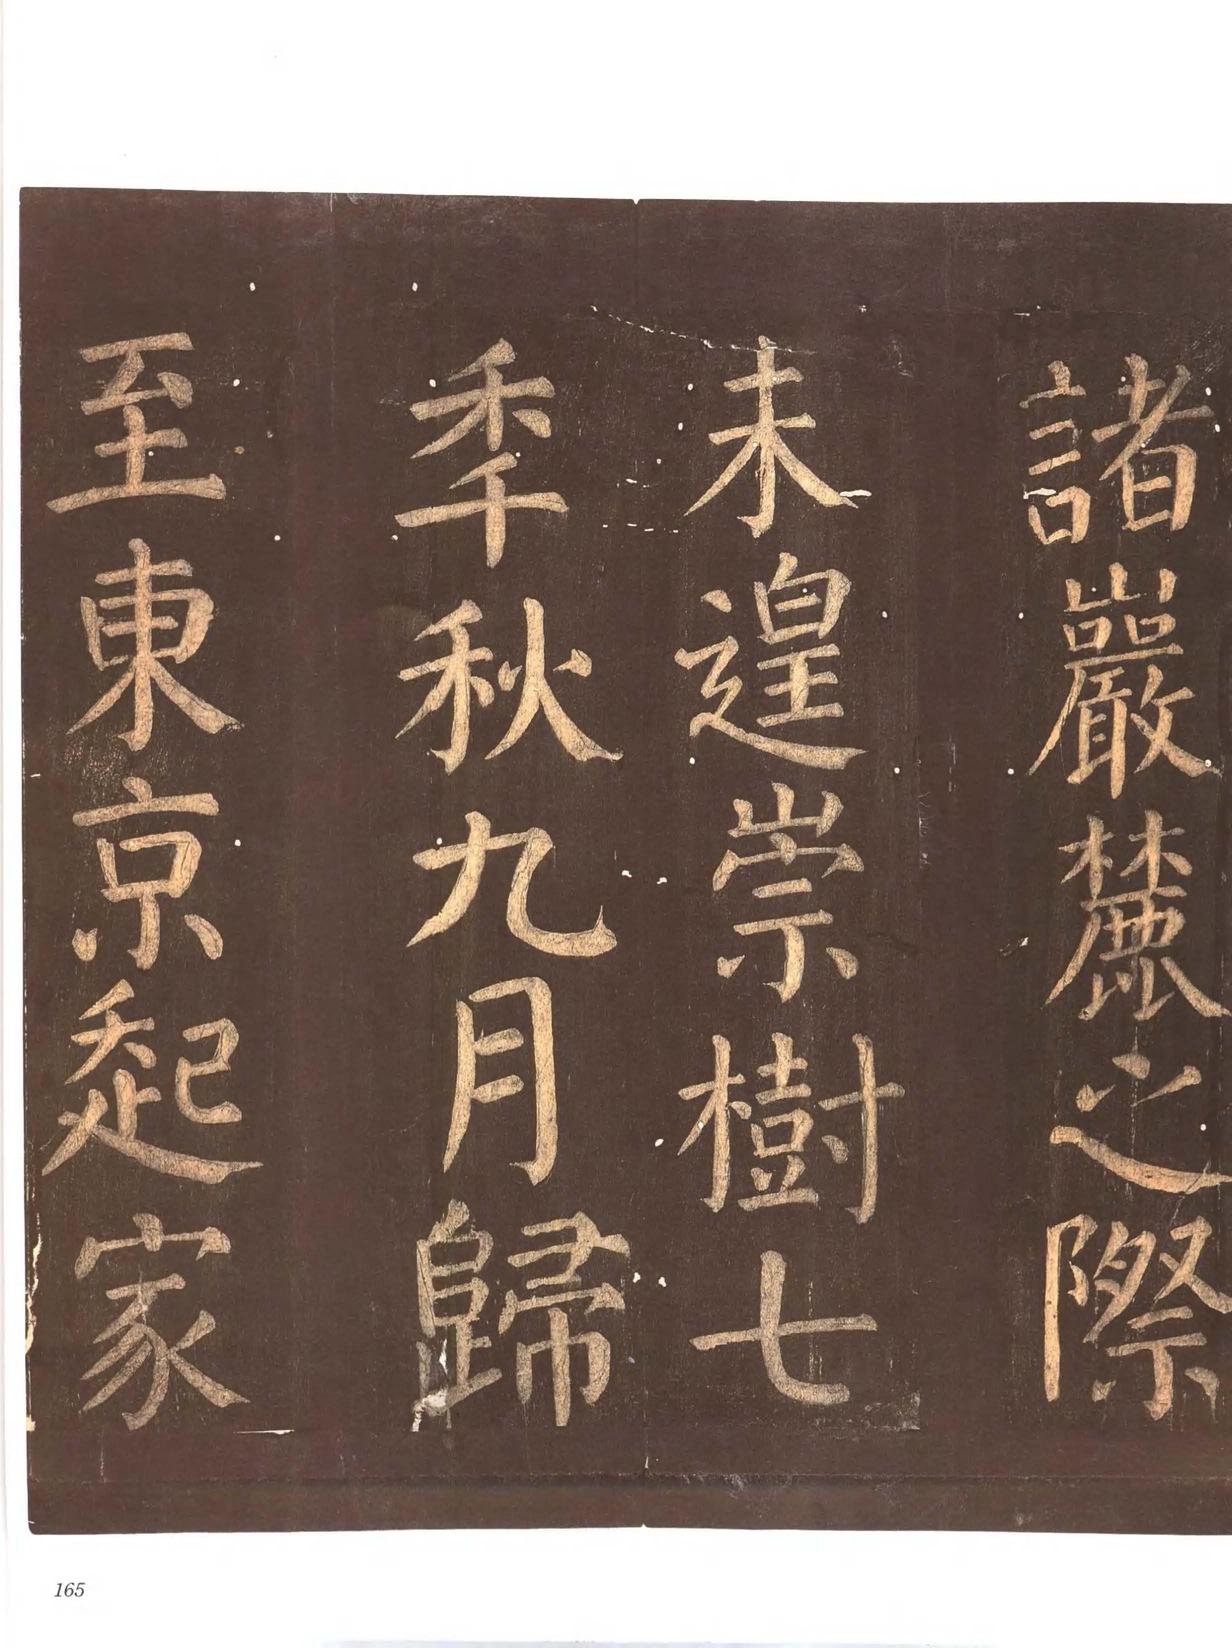 諸巖麓之際
未遑崇樹七
秊秋九月歸
至東京起家
165